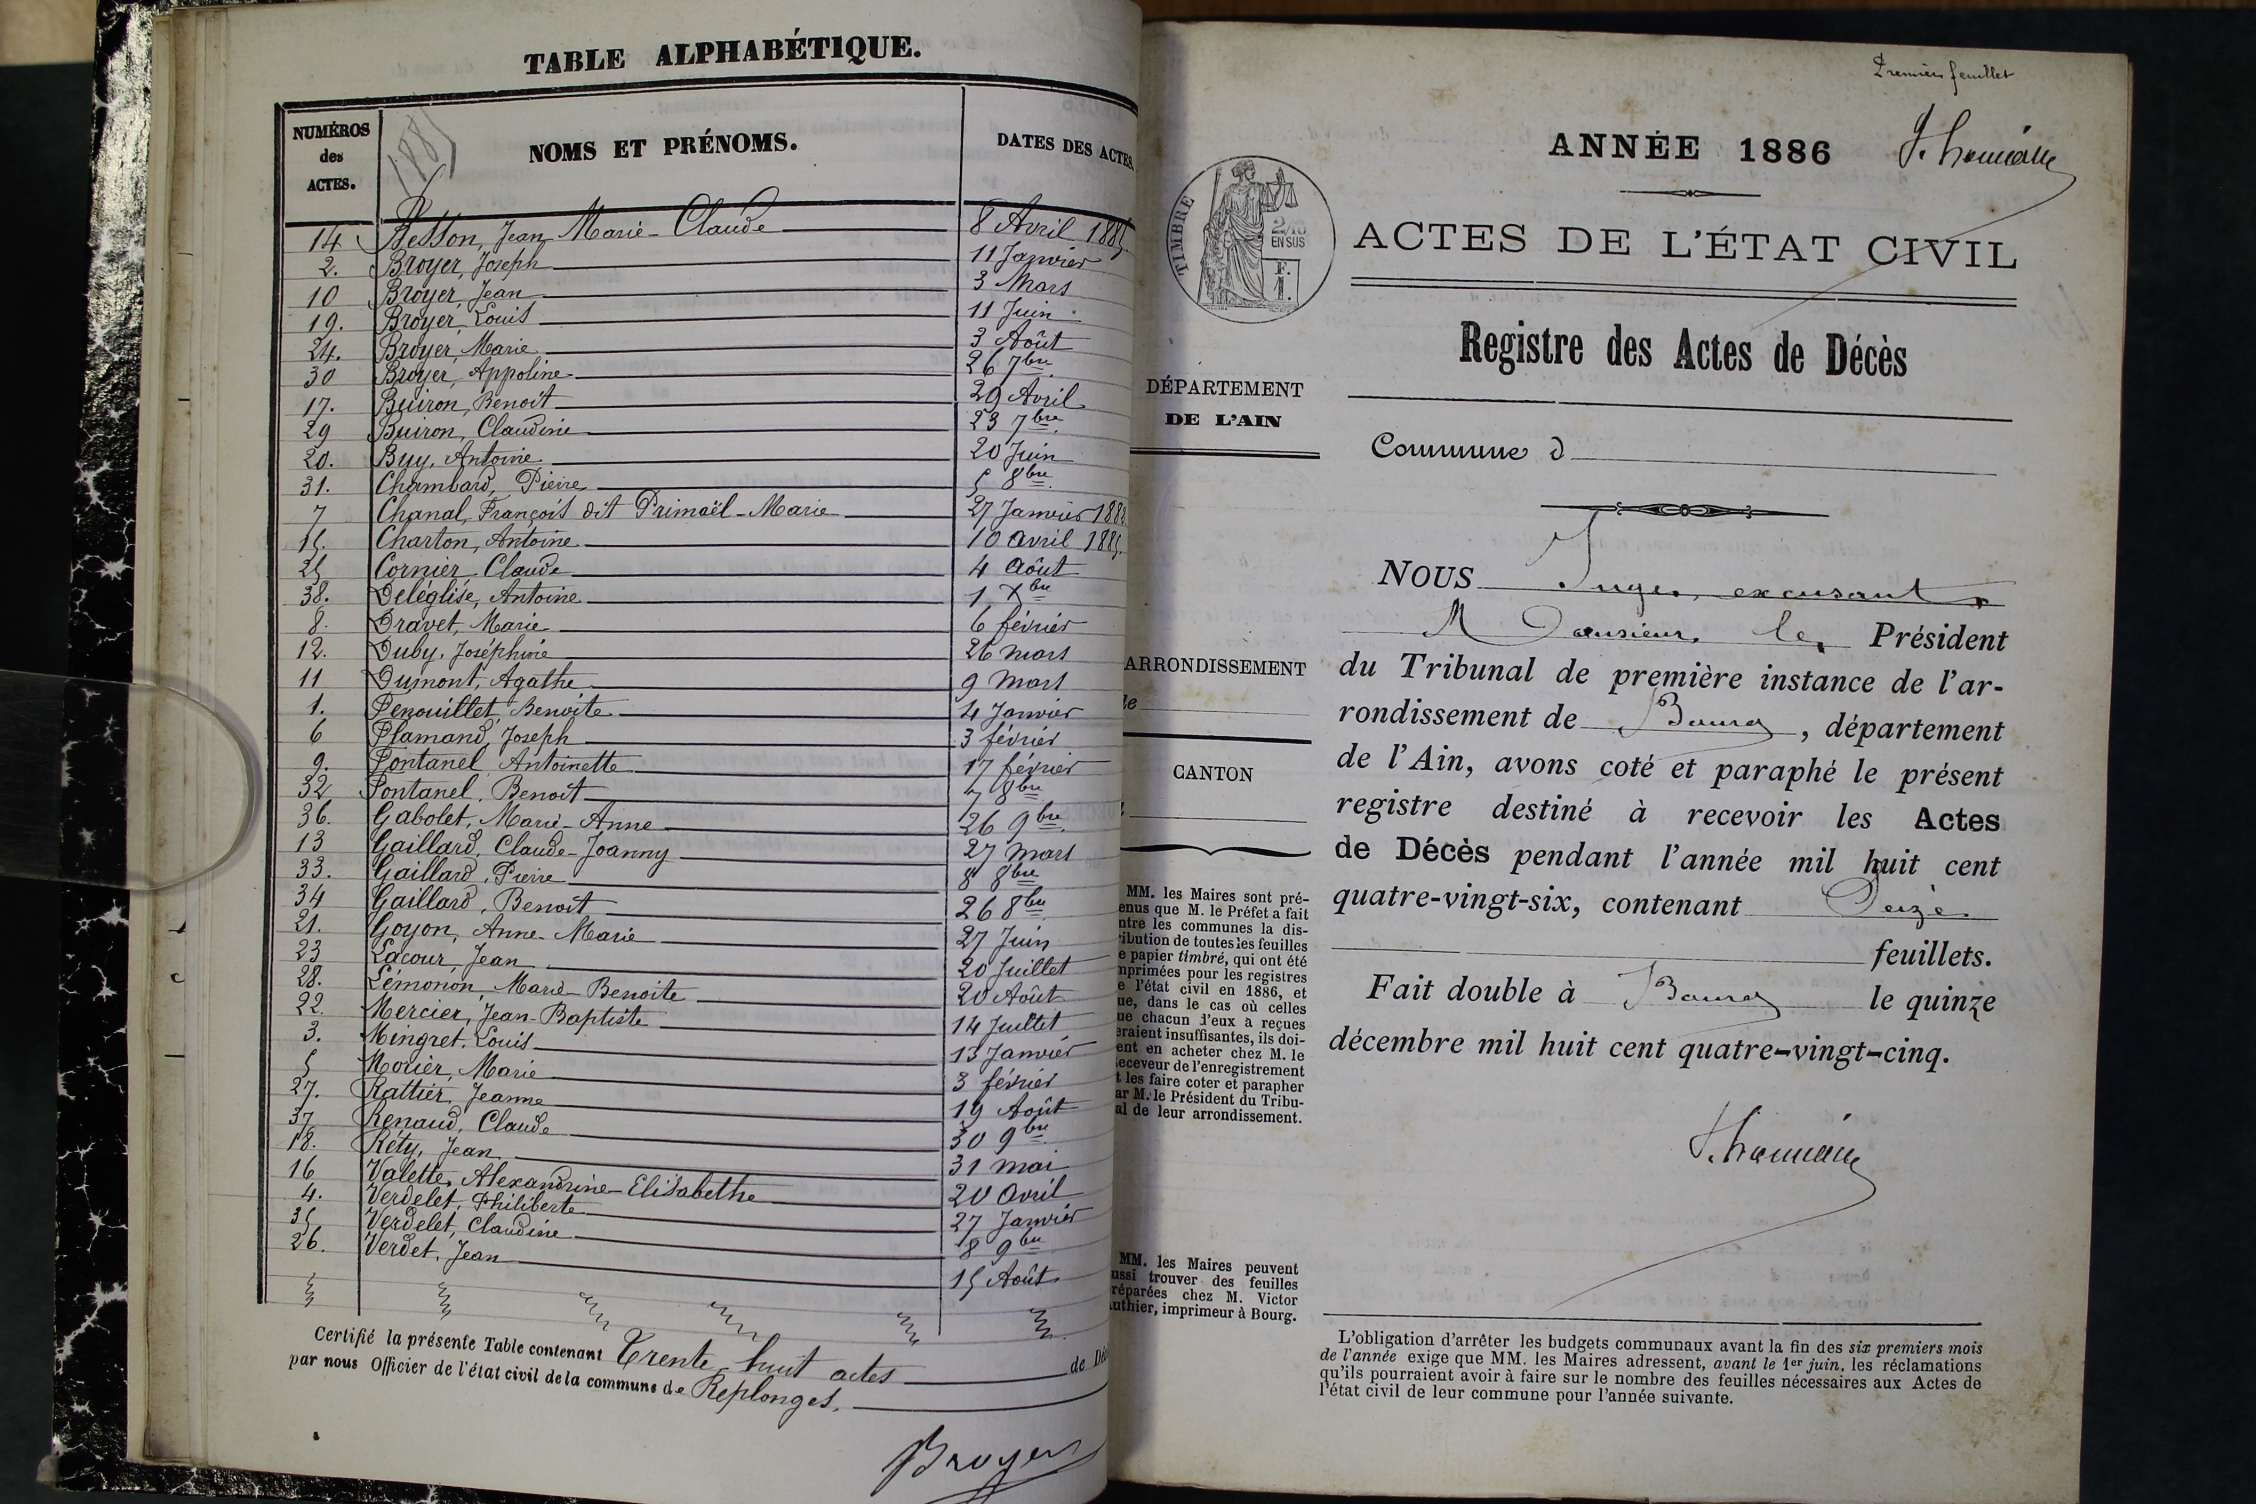 TABLE ALPHABÉTIQUE.
NUMÉROS des ACTES.
1885
NOMS ET PRÉNOMS.
DATES DES ACTES
14 Besson, Jean Marie-Claude 8 Avril 1885
2. Broyer, Joseph 11 Janvier
10 Broyer, Jean 3 Mars
19. Broyer, Louis 11 Juin
24. Broyer, Marie 3 Août
30 Broyer, Appoline 26 7bre
17. Buiron, Benoît 29 Avril
29 Buiron, Claudine 23 7bre
20. Buy, Antoine 20 Juin
31. Chambard, Pierre 5 8bre
7 Chanal, François dit Primaël-Marie 27 Janvier 188
15. Charton, Antoine 10 avril 1885.
25 Cornier Claude 4 Août
38. Deléglise, Antoine 1 Xbre
8. Dravet, Marie 6 février
12. Duby, Joséphine 26 mars
11 Dumont, Agathe 9 Mars
1. Fenouillet Benoite 4 Janvier
6 Flamand, Joseph 3 février
9. Fontanel Antoinette 17 février
32 Fontanel, Benoît 7 8bre
36. Gabolet, Marie-Anne 26 9bre.
13 Gaillard, Claude-Joanny 27 mars
33. Gaillard, Pierre 8 8bre
34 Gaillard, Benoît 26 8bre
21. Goyon, Anne-Marie 27 Juin
23 Lacour, Jean 20 Juillet
28. Lémonon, Marie-Benoite 20 Août
22. Mercier, Jean-Baptiste 14 Juillet
3. Mingret, Louis 13 Janvier
5 Morier, Marie 3 février
27. Rattier, Jeanne 19 Août
37 Renaud, Claude 30 9bre
18. Réty, Jean 31 mai
16 Valette, Alexandrine-Elisabethe 20 Avril
4. Verdelet, Philiberte 27 Janvier
35 Verdelet, Claudine 8 9bre
26. Verdet, Jean 15 Août
Certifié la présente Table contenant Trente-huit actes de Déc
par nous Officier de l'état civil de la commune de Replonges.
Broyer
Premier feuillet
ANNÉE 1886
TIMBRE
2/10 EN SUS
F. 1.
ACTES DE L'ÉTAT CIVIL
Registre des Actes de Décès
DÉPARTEMENT
DE L'AIN
Commune d
NOUS Juge, excusant
Monsieur le Président
du Tribunal de première instance de l'ar-
rondissement de Bourg, département
de l'Ain, avons coté et paraphé le présent
registre destiné à recevoir les Actes
de Décès pendant l'année mil huit cent
quatre-vingt-six, contenant Seize
feuillets.
Fait double à Bourg le quinze
décembre mil huit cent quatre-vingt-cinq.
ARRONDISSEMENT
de
CANTON
MM. les Maires sont pré-
enus que M. le Préfet a fait
ntre les communes la dis-
ribution de toutes les feuilles
e papier timbré, qui ont été
mprimées pour les registres
e l'état civil en 1886, et
ue, dans le cas où celles
ue chacun d'eux a reçues
eraient insuffisantes, ils doi-
ent en acheter chez M. le
eceveur de l'enregistrement
t les faire coter et parapher
ar M. le Président du Tribu-
al de leur arrondissement.
MM. les Maires peuvent
ussi trouver des feuilles
réparées chez M. Victor
uthier, imprimeur à Bourg.
L'obligation d'arrêter les budgets communaux avant la fin des six premiers mois
de l'année exige que MM. les Maires adressent, avant le 1er juin, les réclamations
qu'ils pourraient avoir à faire sur le nombre des feuilles nécessaires aux Actes de
l'état civil de leur commune pour l'année suivante.